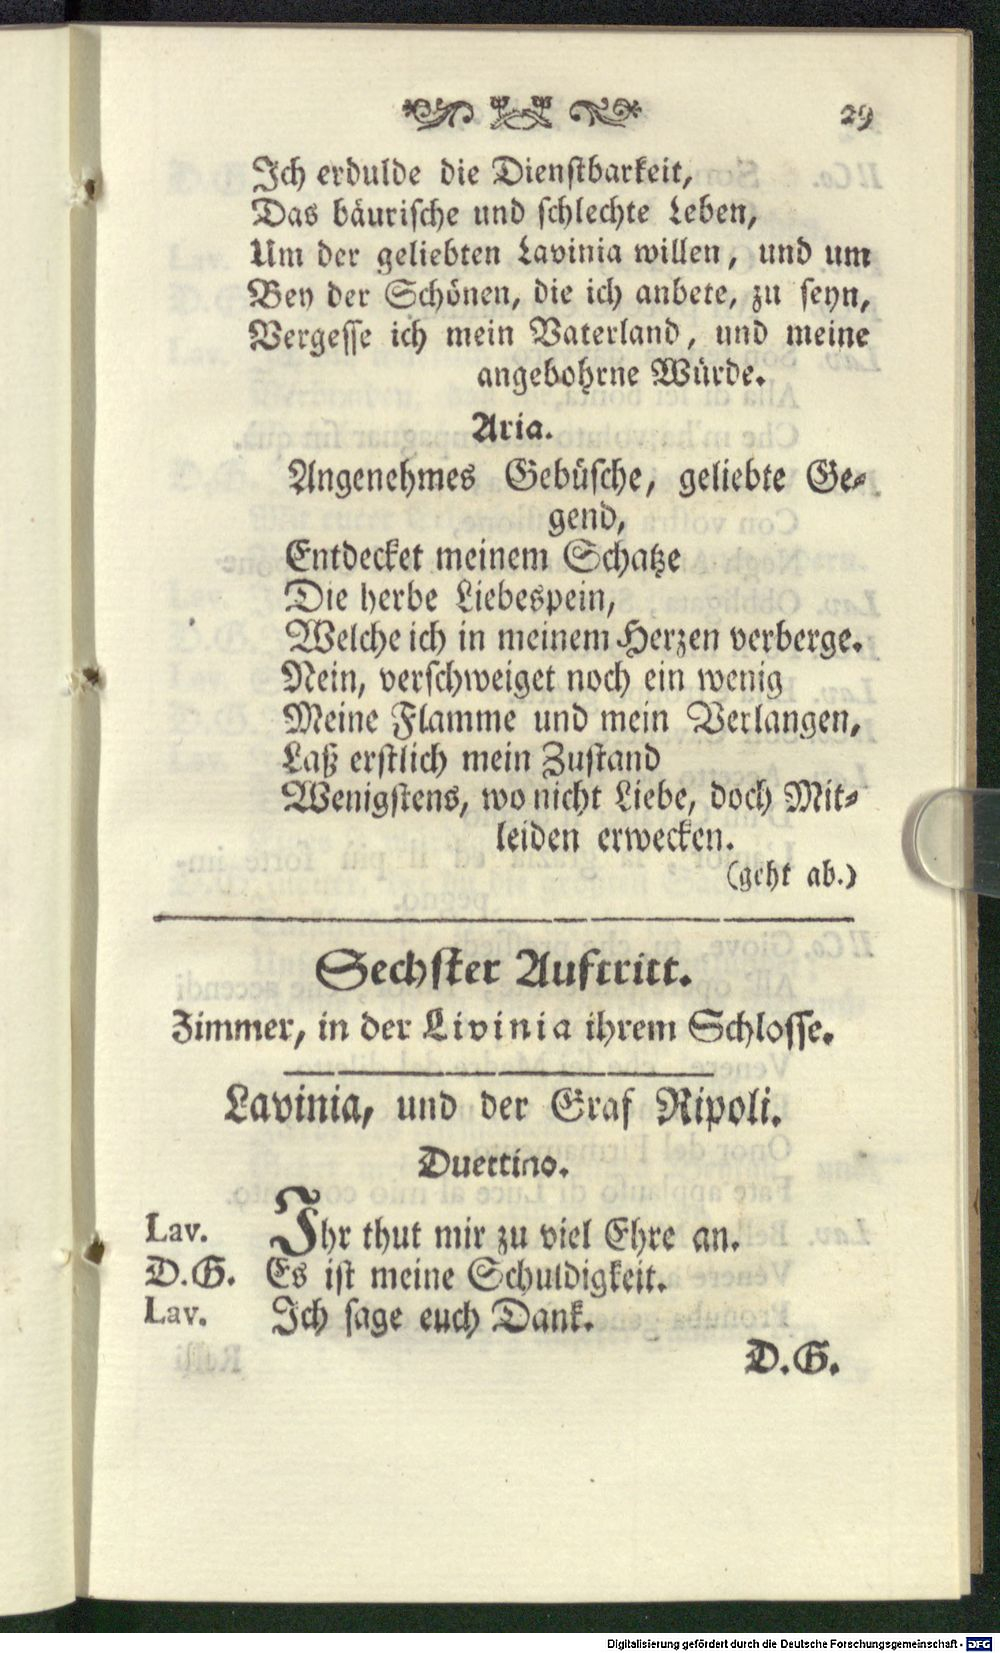 29
Ich erdulde die Dienstbarkeit,
Das bäurische und schlechte Leben,
Um der geliebten Lavinia willen, und um
Bey der Schönen, die ich anbete, zu seyn,
Vergesse ich mein Vaterland, und meine
angebohrne Würde.
Aria.
Angenehmes Gebüsche, geliebte Ge-
gend,
Entdecket meinem Schatze
Die herbe Liebespein,
Welche ich in meinem Herzen verberge.
Nein, verschweiget noch ein wenig
Meine Flamme und mein Verlangen,
Laß erstlich mein Zustand
Wenigstens, wo nicht Liebe, doch Mit-
leiden erwecken.
(geht ab.)
Sechster Auftritt.
Zimmer, in der Livinia ihrem Schlosse.
Lavinia, und der Graf Ripoli.
Duettino.
Lav. Ihr thut mir zu viel Ehre an.
D.G. Es ist meine Schuldigkeit.
Lav. Ich sage euch Dank.
D.G.
Digitalisierung gefördert durch die Deutsche Forschungsgemeinschaft - DFG